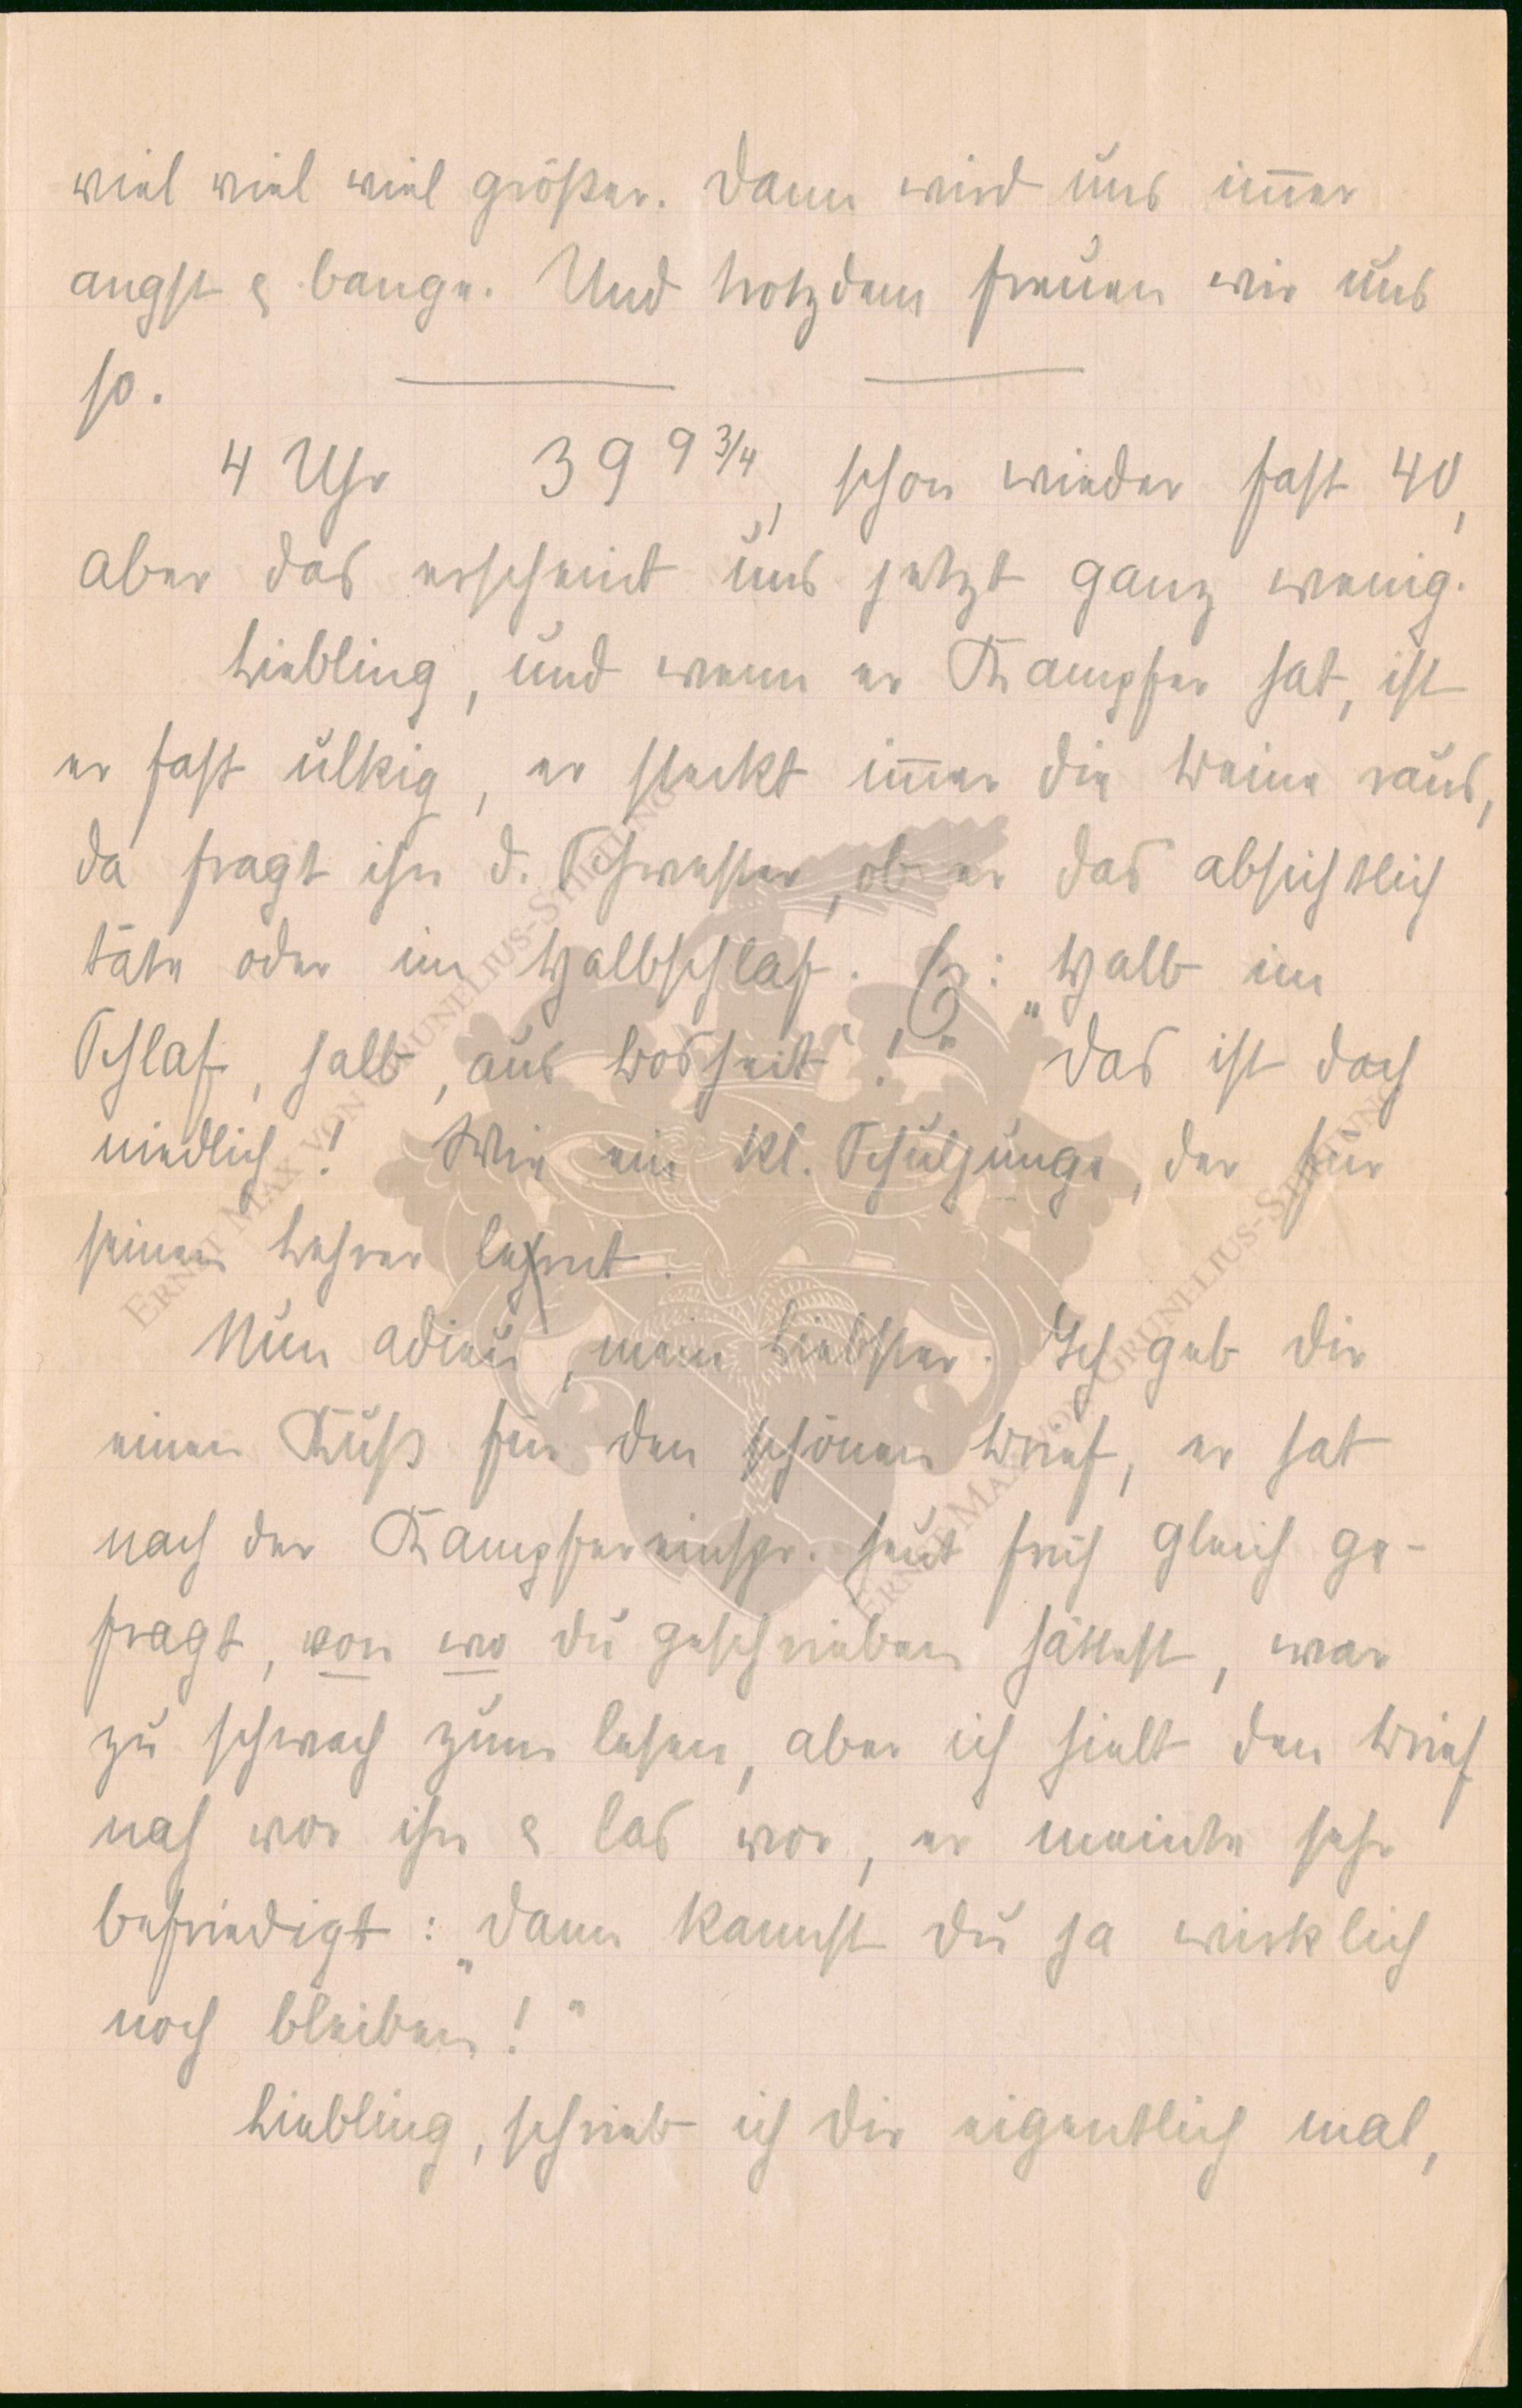 viel viel viel größer. Dann wird uns im̅er
angst & bange. Und trotzdem freuen wir uns
so.
4 Uhr 39 9 3/4, schon wieder fast 40,
aber das erscheint uns jetzt ganz wenig.
Liebling, und wenn er Kampfer hat, ist
er fast ulkig, er steckt im̅er die Beine raus,
da fragt ihn d. Schwester, ob er das absichtlich
täte oder im Halbschlaf. „Halb im
Schlaf, halb, aus Bosheit“! Das ist doch
niedlich! Wie ein kl. Schuljunge, der für
seinen Lehrer lernt.
Nun adieu, mein Liebster. Ich geb dir
einen Kuß für den schönen Brief, er hat
nach der Kampfereinspr. heut früh gleich ge-
fragt, von wo du geschrieben hättest, war
zu schwach zum lesen, aber ich hielt den Brief
nah vor ihn & las vor, er meinte sehr
befriedigt: „Dann kannst du ja wirklich
noch bleiben!“
Liebling, schrieb ich dir eigentlich mal,
ERNST MAX VON GRUNELIUS-STIFTUNG
ERNST MAX VON GRUNELIUS-STIFTUNG